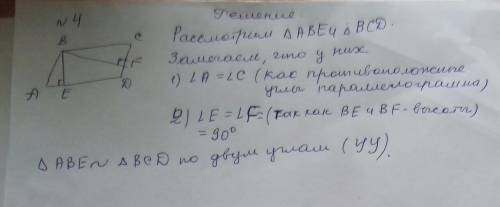 Решение
№4
Рассмотрим △ABE и △BCD.
Замечаем, что у них
1) ∠A = ∠C (как противоположные
углы параллелограмма)
2) ∠E = ∠F = (так как BE и BF - высоты)
= 90°
△ABE ~ △BCD по двум углам (УУ).
B
C
F
A
E
D